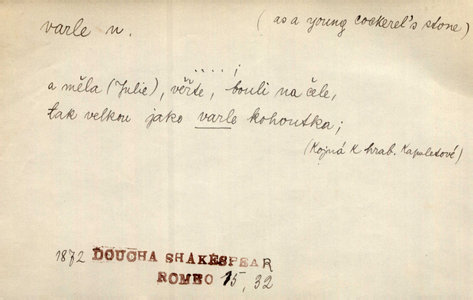 varle n. (as a young cockerel's stone)
....;
a měla (Julie), věřte, bouli na čele,
tak velkou jako varle kohoutka;
(Kojná k hrab. Kapuletové)
1872 DOUCHA SHAKESPEAR
ROMEO 15, 32